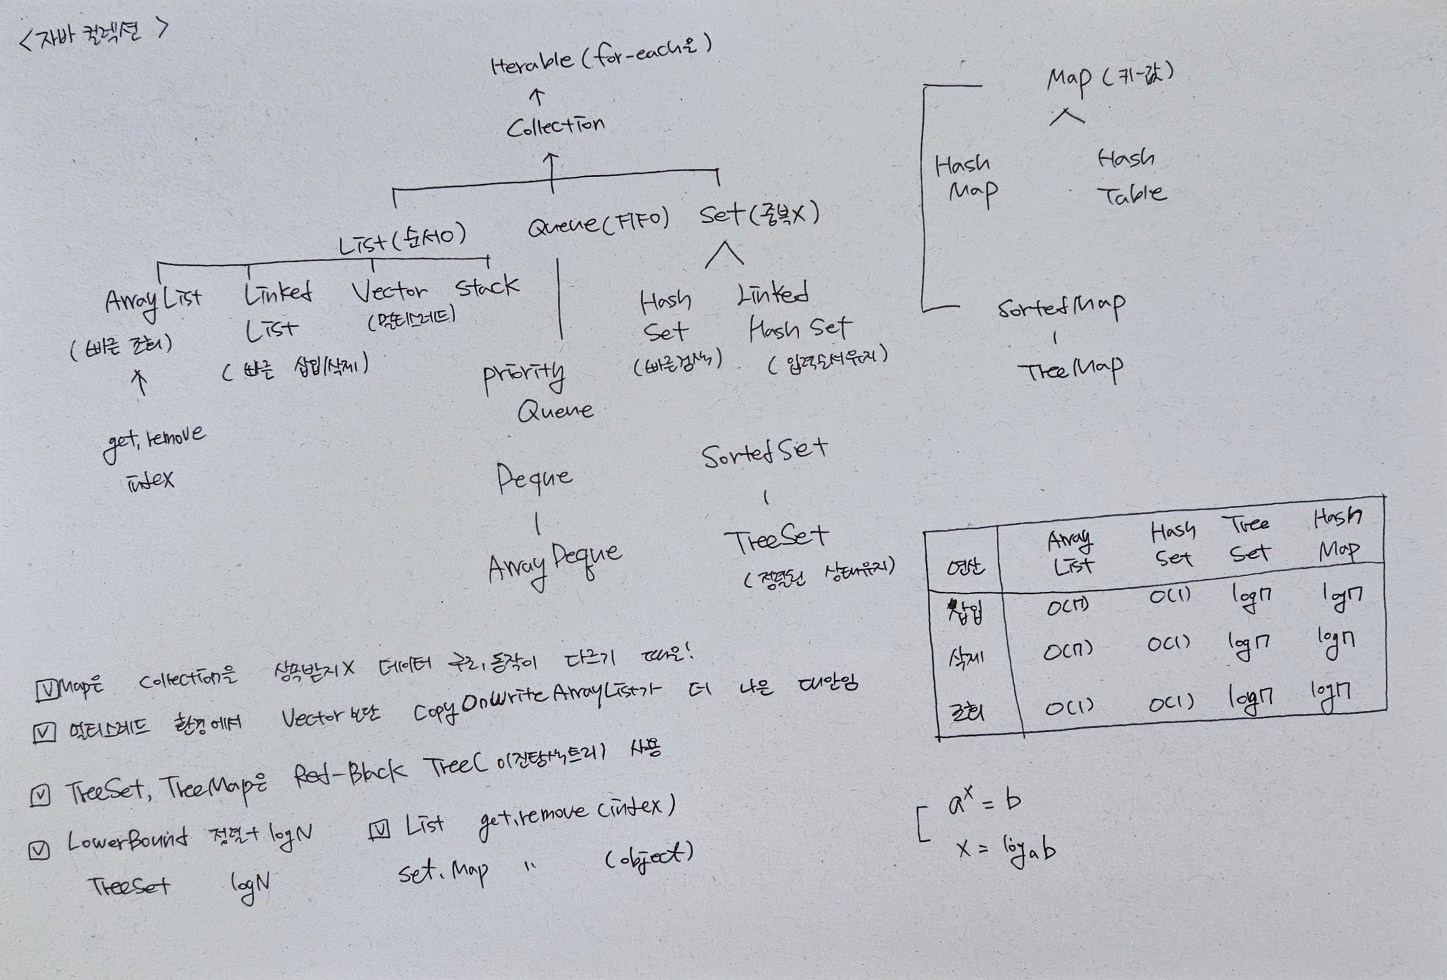 <자바 컬렉션>
Iterable (for-each문)
Collection
List (순서O)
Queue (FIFO)
Set (중복X)
Array List
(빠른 조회)
get, remove
index
Linked
List
(빠른 삽입/삭제)
Vector
(멀티스레드)
Stack
priority
Queue
Deque
Array Deque
Hash
Set
(빠른검색)
Linked
Hash Set
(입력순서유지)
SortedSet
TreeSet
(정렬된 상태유지)
Map (키-값)
Hash
Map
Hash
Table
SortedMap
TreeMap
연산 Array List Hash Set Tree Set Hash Map
삽입 O(n) O(1) logn logn
삭제 O(n) O(1) logn logn
조회 O(1) O(1) logn logn
a^x = b
x = log_a b
☑ Map은 Collection을 상속받지X 데이터 구조, 동작이 다르기 때문!
☑ 멀티스레드 환경에서 Vector보단 CopyOnWriteArrayList가 더 나은 대안임
☑ TreeSet, TreeMap은 Red-Black Tree(이진탐색트리) 사용
☑ LowerBound 정렬+logN
TreeSet logN
☑ List get, remove (index)
set, Map " (object)